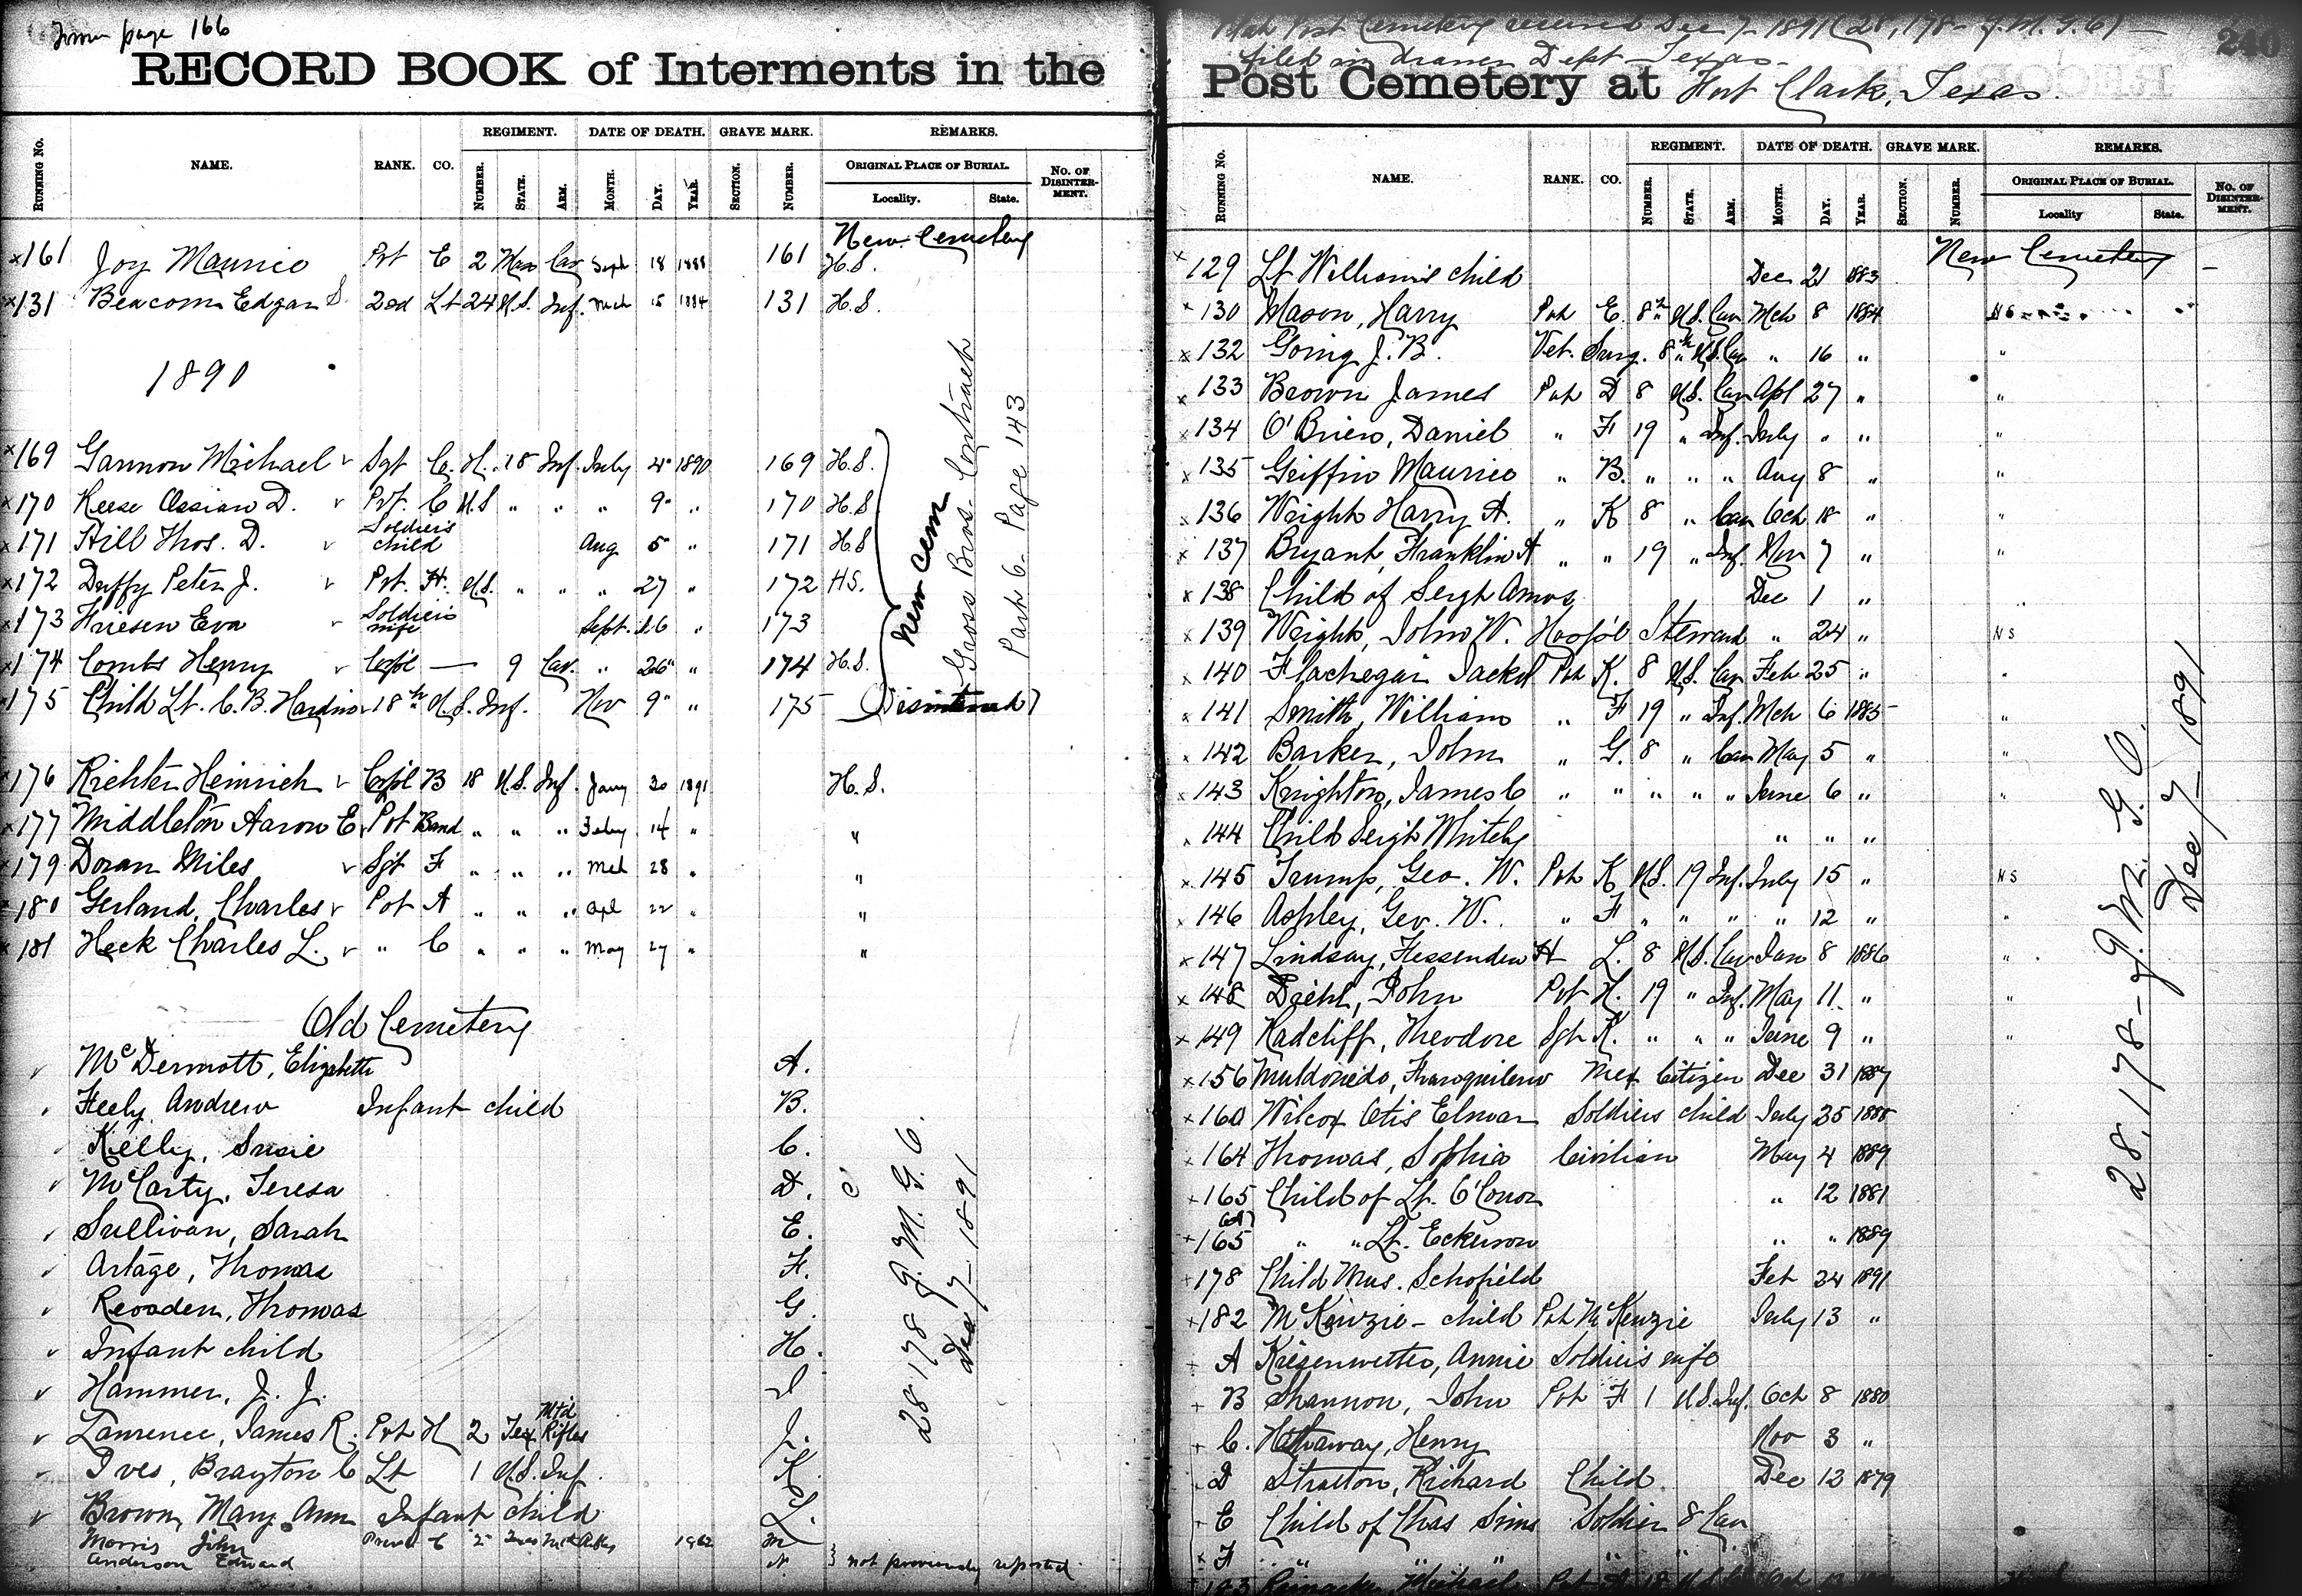 From page 166
RECORD BOOK of Interments in the
RUNNING No. NAME. RANK. CO. REGIMENT. NUMBER. STATE. ARM. DATE OF DEATH. MONTH. DAY. YEAR. GRAVE MARK. SECTION. NUMBER. REMARKS. ORIGINAL PLACE OF BURIAL. Locality. State. No. OF DISINTERMENT.
New Cemetery
x161 Joy Maurice Pvt E 2 Cav Sept 18 1888 161 H.S.
x131 Beacom Edgar S. 2nd Lt 24 U.S. Inf. Mch 15 1884 131 H.S.
1890
x169 Gannon Michael Sgt Co. H. 18 Inf. July 4" 1890 169 H.S.
x170 Reese Ossian D. Pvt. C U.S " " " 9" " 170 H.S
x171 Hill Thos. D. Soldiers child Aug 5" " 171 H.S
x172 Duffy Peter J. Pvt. H. U.S. " " " 27 " 172 H.S.
x173 Friesen Eva Soldiers wife Sept. 16 " 173
x174 Combs Henry Corpl — 9 Cav. " 26" " 174 H.S.
x175 Child Lt. C. B. Hardin 18th U.S. Inf. Nov 9" " 175 (Disinterred)
New cem
Gross Bros. Contract
Part 6 - Page 143
x176 Richter Heinrich Corpl B 18 U.S. Inf. Jany 30 1891 H.S.
x177 Middleton Aaron E Pvt Band " " " Feby 14 " "
x179 Doran Miles Sgt F " " " Mch 28 " "
x180 Gerland, Charles Pvt A " " " Apl 22 " "
x181 Heck Charles L. " C " " " May 27 " "
Old Cemetery
McDermott, Elizabeth A.
Feely Andrew Infant child B.
Kelly, Susie C.
McCarty, Teresa D.
Sullivan, Sarah E.
Artage, Thomas F.
Thomas G.
Infant child H.
Hammer, J. J. I
Lawrence, James R. Pvt H 2 Tex Mtd Rifles J.
Ives, Brayton C Lt 1 U.S. Inf. K
Brown, Mary Ann Infant child L.
Morris John C 2 1862 M
Anderson Edward N } not previously reported
28 178 Q. M. G. O.
Dec 7 - 1891
Post Cemetery received Dec 7 - 1891 (28,178 - Q.M.G.O) —
filed in drawer Dept Texas -
240
Post Cemetery at Fort Clark, Texas.
RUNNING No. NAME. RANK. CO. REGIMENT. NUMBER. STATE. ARM. DATE OF DEATH. MONTH. DAY. YEAR. GRAVE MARK. SECTION. NUMBER. REMARKS. ORIGINAL PLACE OF BURIAL. Locality State. No. OF DISINTERMENT.
New Cemetery —
x129 Lt Williams child Dec 21 1883
x130 Mason, Harry Pvt E. 8th U.S. Cav Mch 8 1884
x132 Going J. B. Vet. Surg. 8th U.S. Cav " 16 " "
x133 Brown James Pvt D 8 U.S. Cav Apl 27 " "
x134 O'Brien, Daniel " F 19 " Inf. July " " "
x135 Griffin Maurice " B. " " " Aug 8 " "
x136 Wright Harry A. " K 8 " Cav Oct 18 " "
x137 Bryant, Franklin A " " 19 " Inf. Nov 7 " "
x138 Child of Sergt Amos Dec 1 "
x139 Wright, John W. Hospl Steward " 24 " NS
x140 Pvt K. 8 U.S. Cav Feb 25 " "
x141 Smith, William " F 19 " Inf. Mch 6 1885 "
x142 Barker, John " G. 8 " Cav May 5 " "
x143 Knighton, James C " " " " " June 6 " "
x144 Child Sergt Whitely " " "
x145 Trump, Geo. W. Pvt K U.S. 19 Inf. July 15 " NS
x146 Ashley, Geo. W. " F " " " " 12 " "
x147 Lindsay, Fessenden H L. 8 U.S. Cav Jan 8 1886 "
x148 Diehl, John Pvt H. 19 " Inf. May 11 " "
x149 Radcliff, Theodore Sgt K. " " " June 9 " "
x156 Muldonedo, Tranquileno Mex Citizen Dec 31 1887
x160 Wilcox Otis Elmar Soldiers child July 25 1888
x164 Thomas, Sophia Civilian May 4 1889
x165 Child of Lt. O'Conor " 12 1881
x165 (A) " " Lt. Eckerson " " 1889
x178 Child Mus. Schofield Feb 24 1891
x182 McKenzie - child Pvt McKenzie July 13 "
x A Kriegenwetter, Annie Soldiers wife
x B Shannon, John Pvt F 1 U.S. Inf. Oct 8 1880
x C. Hathaway, Henry Nov 3 "
x D Stratton, Richard Child Dec 12 1879
x E Child of Chas Sims Soldier 8 Cav
x F " " " " " "
28,178 - Q. M. G. O.
Dec 7 - 1891